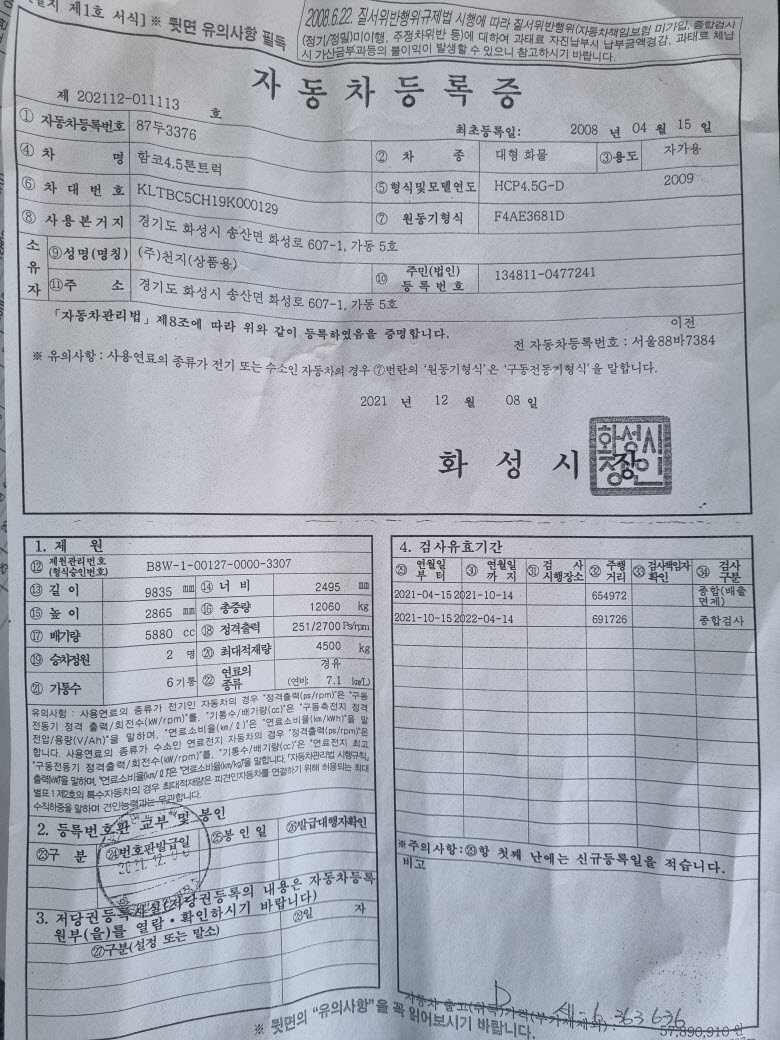 제1호 서식] ※ 뒷면 유의사항 필독
2008.6.22. 질서위반행위규제법 시행에 따라 질서위반행위(자동차책임보험 미가입, 종합검사
(정기/정밀)미이행, 주정차위반 등)에 대하여 과태료 자진납부시 납부금액경감, 과태료 체납
시 가산금부과등의 불이익이 발생할 수 있으니 참고하시기 바랍니다.
자동차등록증
제 202112-011113 호
최초등록일: 2008 년 04 월 15 일
① 자동차등록번호 87두3376
② 차 종 대형 화물 ③용도 자가용
④ 차 명 함코4.5톤트럭
⑤형식및모델연도 HCP4.5G-D 2009
⑥ 차 대 번 호 KLTBC5CH19K000129
⑦ 원동기형식 F4AE3681D
⑧ 사용본거지 경기도 화성시 송산면 화성로 607-1, 가동 5호
소유자
⑨성명(명칭) (주)천지(상품용)
⑩ 주민(법인)등록번호 134811-0477241
⑪주 소 경기도 화성시 송산면 화성로 607-1, 가동 5호
「자동차관리법」제8조에 따라 위와 같이 등록하였음을 증명합니다.
이전
전 자동차등록번호 : 서울88바7384
※ 유의사항 : 사용연료의 종류가 전기 또는 수소인 자동차의 경우 ⑦번란의 '원동기형식'은 '구동전동기형식'을 말합니다.
2021 년 12 월 08 일
화 성 시 장
화성시
장인
1. 제 원
⑫ 제원관리번호(형식승인번호) B8W-1-00127-0000-3307
⑬ 길 이 9835 mm ⑭ 너 비 2495 mm
⑮ 높 이 2865 mm ⑯ 총중량 12060 kg
⑰ 배기량 5880 cc ⑱ 정격출력 251/2700 Ps/rpm
⑲ 승차정원 2 명 ⑳ 최대적재량 4500 kg
㉑ 기통수 6기통 ㉒ 연료의 종류 경유 (연비: 7.1 km/L)
유의사항 : 사용연료의 종류가 전기인 자동차의 경우 "정격출력(ps/rpm)"은 "구동
전동기 정격 출력/회전수(kW/rpm)"를, "기통수/배기량(cc)"은 "구동축전지 정격
전압/용량(V/Ah)"을 말하며, "연료소비율(km/ℓ)"은 "연료소비율(km/kWh)"을 말
합니다. 사용연료의 종류가 수소인 연료전지 자동차의 경우 "정격출력(ps/rpm)"은
"구동전동기 정격출력/회전수(kW/rpm)"를, "기통수/배기량(cc)"은 "연료전지 최고
출력(kW)"을 말하며, "연료소비율(km/ℓ)"은 "연료소비율(km/kg)"을 말합니다. 「자동차관리법 시행규칙」
별표 1 제2호의 특수자동차의 경우 최대적재량은 피견인자동차를 연결하기 위해 허용되는 최대
수직하중을 말하며 견인능력과는 무관합니다.
2. 등록번호판 교부 및 봉인
㉓구 분 ㉔번호판발급일 ㉕봉 인 일 ㉖발급대행자확인
3. 저당권등록사실(저당권등록의 내용은 자동차등록
원부(을)를 열람・확인하시기 바랍니다)
㉗구분(설정 또는 말소) ㉘일 자
4. 검사유효기간
㉙ 연월일부터 ㉚ 연월일까지 ㉛ 검 사 시행장소 ㉜ 주행거리 ㉝ 검사책임자확인 ㉞ 검사구분
2021-04-15 2021-10-14 654972 종합(배출면제)
2021-10-15 2022-04-14 691726 종합검사
※주의사항:㉙항 첫째 난에는 신규등록일을 적습니다.
비고
자동차 출고(취득)가격(부가세제외) : 57,890,910 원
※ 뒷면의 "유의사항"을 꼭 읽어보시기 바랍니다.